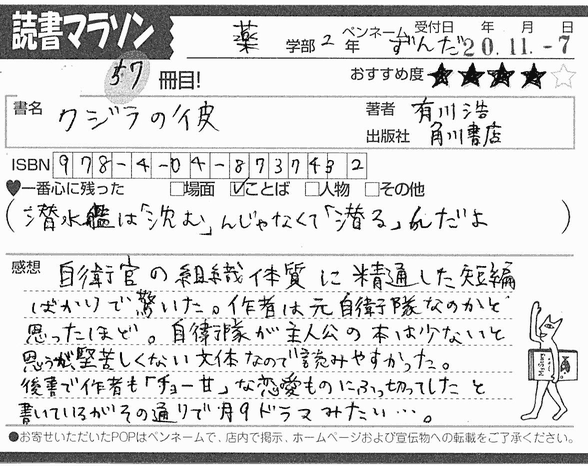 読書マラソン
薬 学部 2 年 ペンネーム ずんだ 受付日 年 月 日 20.11.-7
57 冊目! おすすめ度 ★★★★☆
書名 クジラの彼 著者 有川浩
出版社 角川書店
ISBN 978-4-04-873743 2
♥一番心に残った □場面 ☑ことば □人物 □その他
(潜水艦は「沈む」んじゃなくて「潜る」んだよ)
感想 自衛官の組織体質に精通した短編
ばかりで驚いた。作者は元自衛隊なのかと
思ったほど。自衛隊が主人公の本は少ないと
思うが堅苦しくない文体なので読みやすかった。
後書で作者も「チョー甘」な恋愛ものにふっ切ってしたと
書いているがその通りで月9ドラマみたい…。
●お寄せいただいたPOPはペンネームで、店内で掲示、ホームページおよび宣伝物への転載をご了承ください。